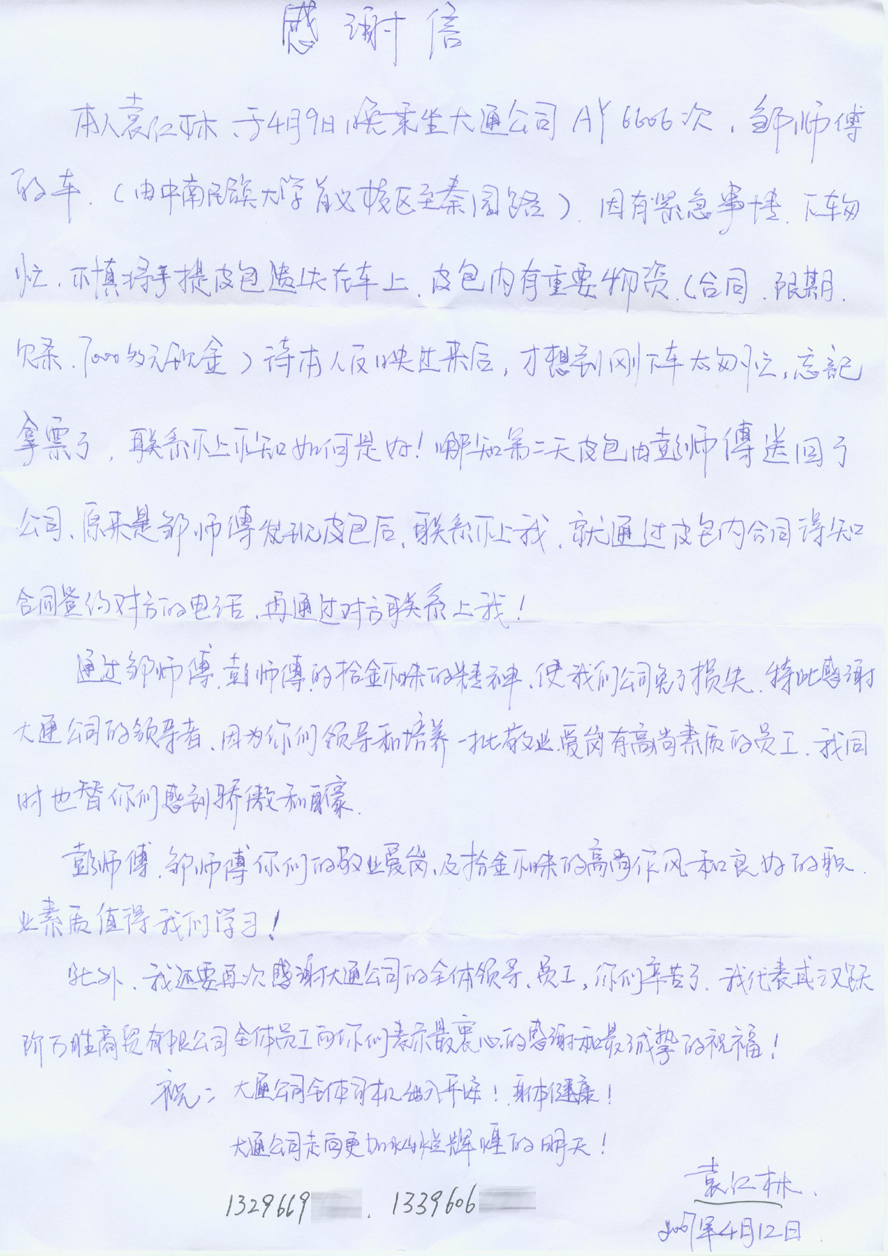 感谢信
本人袁江林、于4月9日晚乘坐大通公司AY6606次,邹师傅
的车.(由中南民族大学首义校区至秦园路).因有紧急事情.下车匆
忙.不慎将手提皮包遗失在车上.皮包内有重要物资.(合同.限期.
欠条.7000多元现金)待本人反映过来后,才想到刚下车太匆忙,忘记
拿票了,联系不上不知如何是好!哪知第二天皮包由彭师傅送回了
公司、原来是邹师傅发现皮包后、联系不上我.就通过皮包内合同得知
合同签约对方的电话.再通过对方联系上我!
通过邹师傅.彭师傅的拾金不昧的精神、使我们公司免了损失.特此感谢
大通公司的领导者、因为你们领导和培养一批敬业.爱岗有高尚素质的员工.我同
时也替你们感到骄傲和自豪.
彭师傅.邹师傅你们的敬业爱岗、及拾金不昧的高尚作风和良好的职.
业素质值得我们学习!
此外、我还要再次感谢大通公司的全体领导、员工,你们辛苦了.我代表武汉跃
阶万胜商贸有限公司全体员工向你们表示最衷心的感谢和最诚挚的祝福!
祝:大通公司全体司机出入平安!身体健康!
大通公司走向更加灿烂辉煌的明天!
袁江林.
1329669 . 1339606
2007年4月12日.